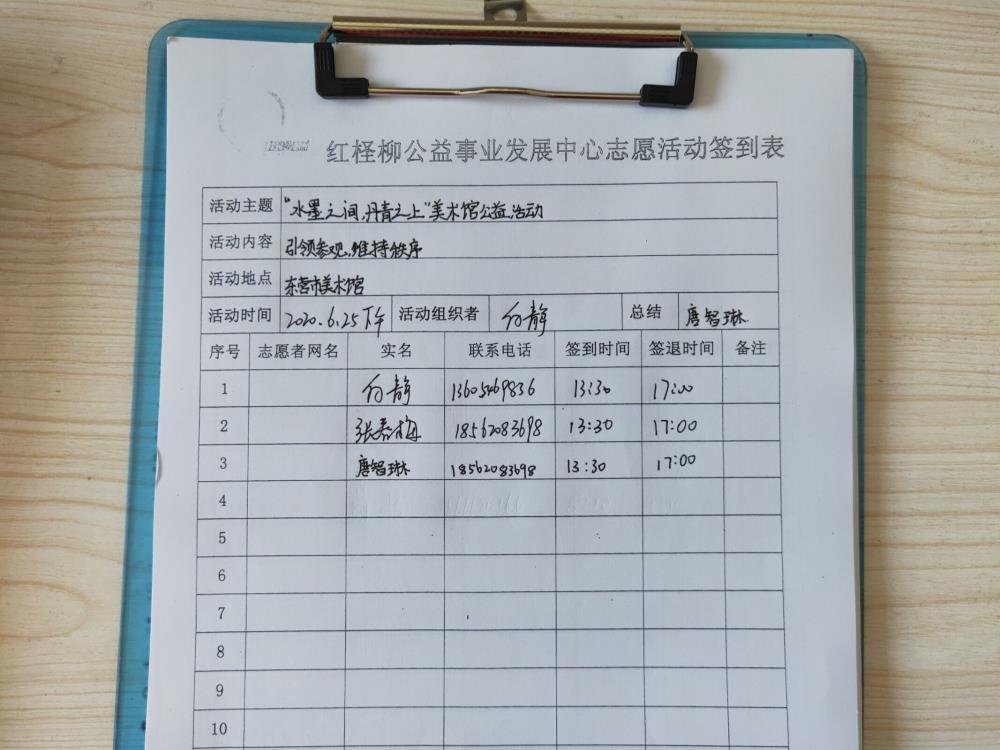 红柽柳公益事业发展中心志愿活动签到表
活动主题 "水墨之间,丹青之上"美术馆公益活动
活动内容 引领参观,维持秩序
活动地点 东营市美术馆
活动时间 2020.6.25下午 活动组织者 付静 总结 唐智琳
序号 志愿者网名 实名 联系电话 签到时间 签退时间 备注
1 付静 13605469836 13:30 17:00
2 张春梅 18562083698 13:30 17:00
3 唐智琳 18562083698 13:30 17:00
4
5
6
7
8
9
10